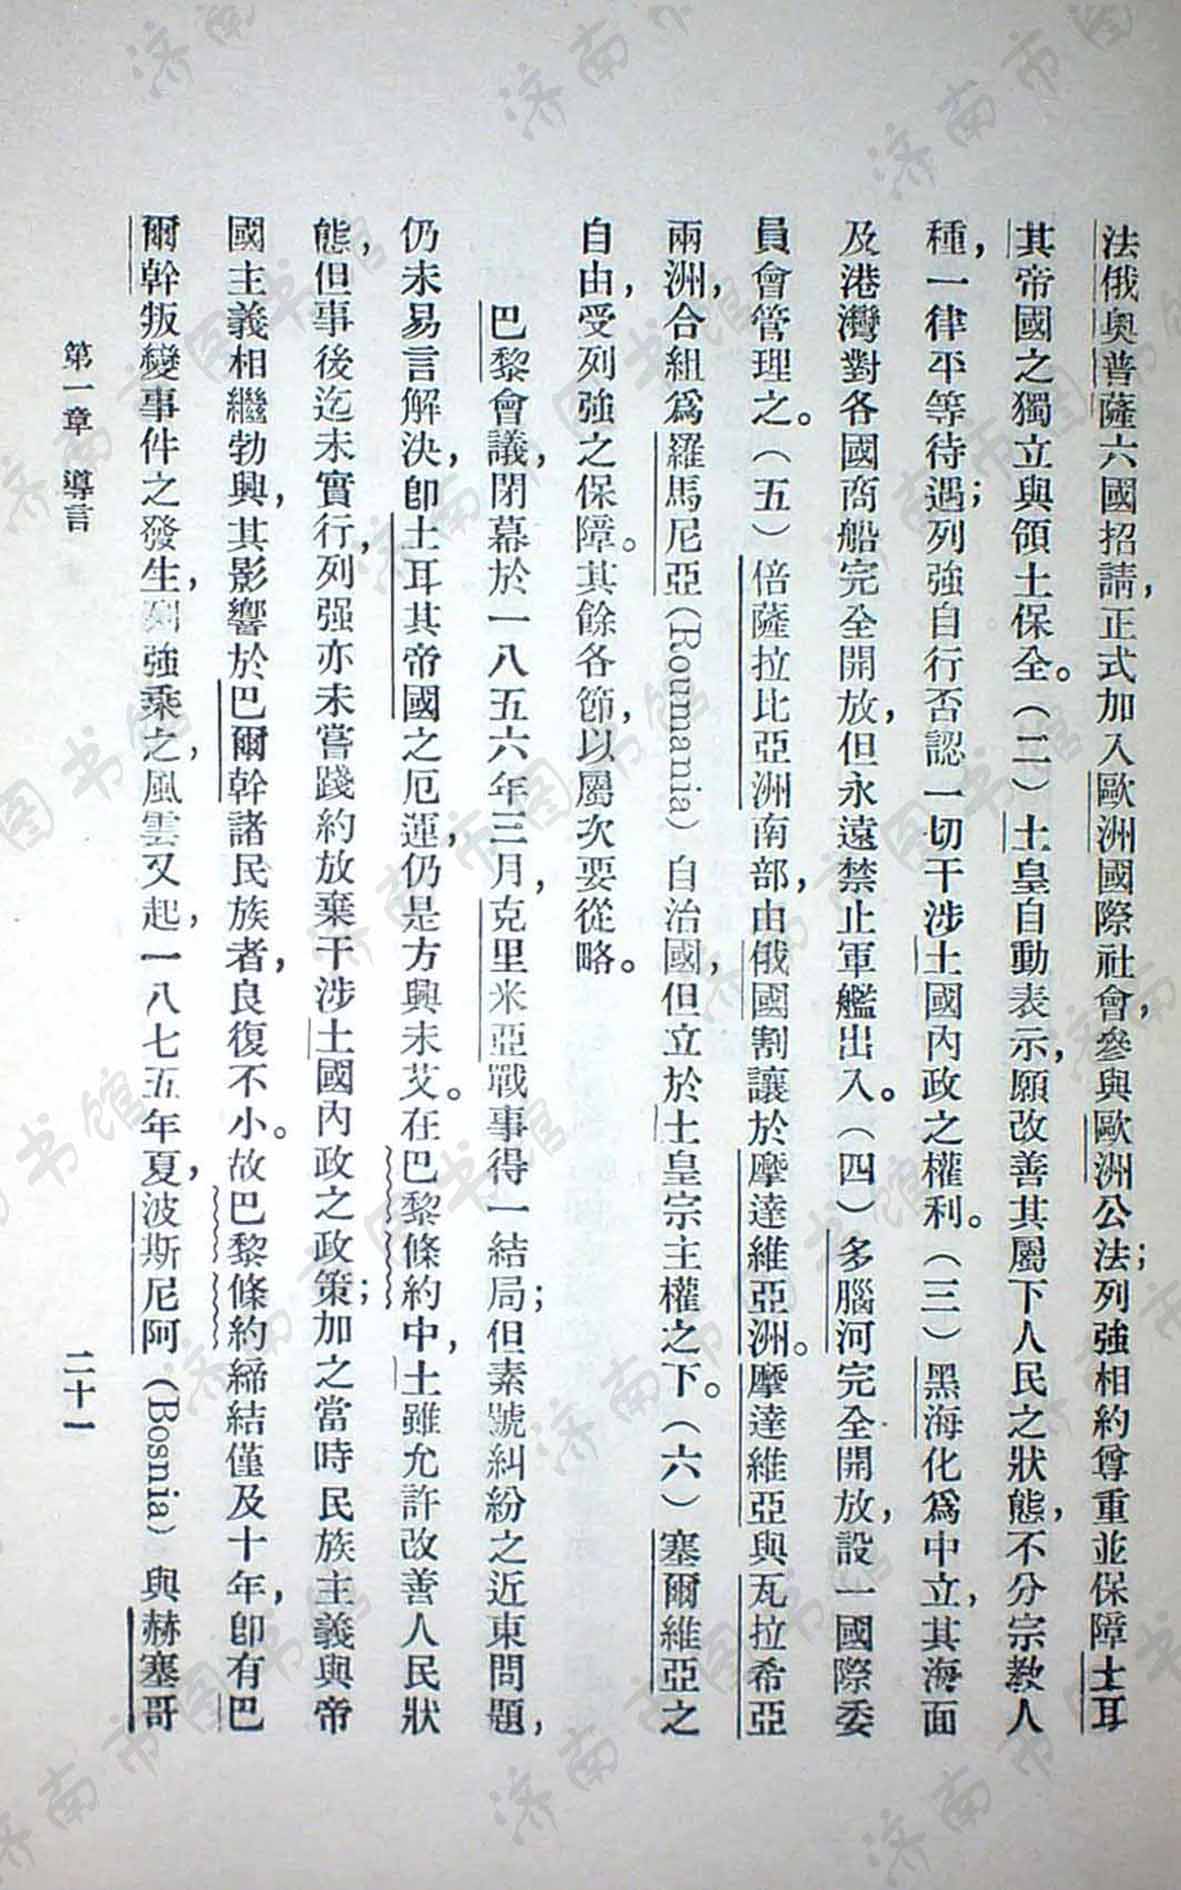 法俄奥普薩六國招請，正式加入歐洲國際社會，參與歐洲公法；列強相約尊重並保障土耳
其帝國之獨立與領土保全。（二）土皇自動表示，願改善其屬下人民之狀態，不分宗教人
種，一律平等待遇；列強自行否認一切干涉土國內政之權利。（三）黑海化爲中立，其海面
及港灣對各國商船完全開放，但永遠禁止軍艦出入。（四）多腦河完全開放，設一國際委
員會管理之。（五）倍薩拉比亞洲南部，由俄國割讓於摩達維亞洲。摩達維亞與瓦拉希亞
兩洲，合組爲羅馬尼亞（Roumania）自治國，但立於土皇宗主權之下。（六）塞爾維亞之
自由，受列強之保障。其餘各節，以屬次要從略。
巴黎會議，閉幕於一八五六年三月，克里米亞戰事得一結局；但素號糾紛之近東問題，
仍未易言解決，卽土耳其帝國之厄運，仍是方興未艾。在巴黎條約中，土雖允許改善人民狀
態，但事後迄未實行，列强亦未嘗踐約放棄干涉土國內政之政策；加之當時民族主義與帝
國主義相繼勃興，其影響於巴爾幹諸民族者，良復不小。故巴黎條約締結僅及十年，卽有巴
爾幹叛變事件之發生，列強乘之，風雲又起，一八七五年夏，波斯尼阿（Bosnia）與赫塞哥
第一章 導言 二十一
济南市图书馆